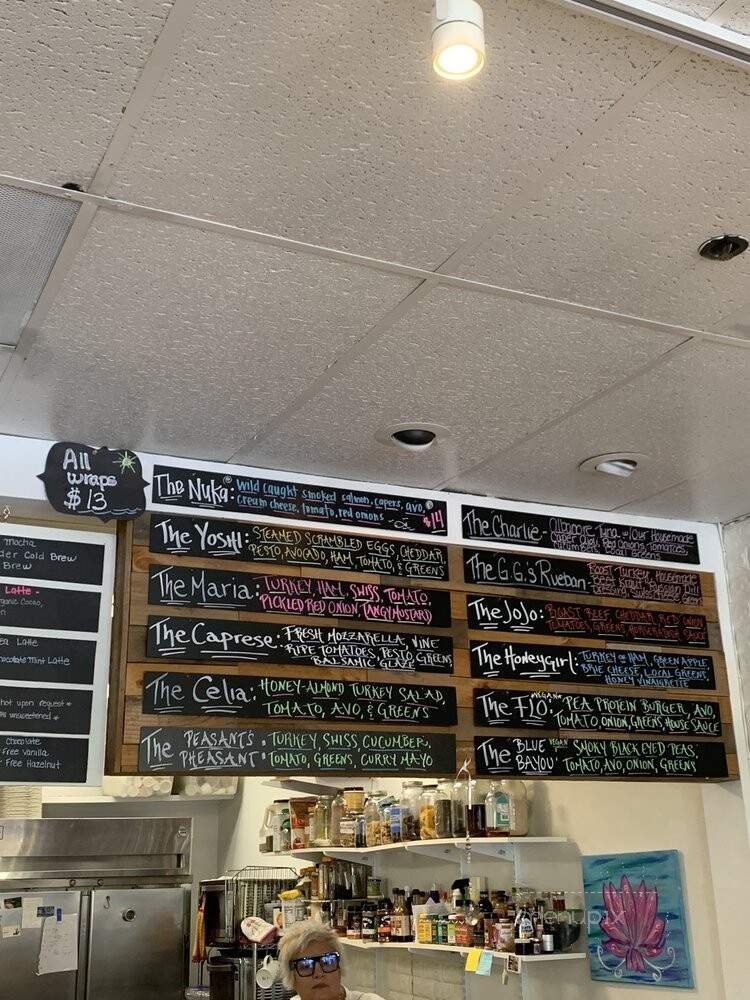 All
wraps
$13
The Nuka: Wild caught smoked salmon, capers, avo,
cream cheese, tomato, red onions
$14
The Yoshi: STEAMED SCRAMBLED EGGS, CHEDDAR,
PESTO, AVOCADO, HAM, TOMATO, & GREENS
The Maria: TURKEY, HAM, SWISS, TOMATO,
PICKLED RED ONION, TANGY MUSTARD
The Caprese: FRESH MOZZARELLA, VINE
RIPE TOMATOES, PESTO, GREENS
BALSAMIC GLAZE
The Celia: HONEY-ALMOND TURKEY SALAD,
TOMATO, AVO, & GREENS
The PEASANT'S PHEASANT: TURKEY, SWISS, CUCUMBER,
TOMATO, GREENS, CURRY MAYO
The Charlie - Albacore Tuna w/ Our Housemade
Red Onions, Tomatoes,
Greens
The G.G.'s Rueban: Roast Turkey, Housemade
Beet Kraut, Dill
Dressing, Swiss
The JoJo: ROAST BEEF, CHEDDAR, RED ONION
TOMATOES, GREENS, HORSERADISH SAUCE
The Honeygirl: TURKEY OR HAM, GREEN APPLE
BRIE CHEESE, LOCAL GREENS,
HONEY VINAIGRETTE
The Flo: VEGAN PEA PROTEIN BURGER, AVO,
TOMATO, ONION, GREENS HOUSE SAUCE
The BLUE BAYOU: VEGAN SMOKY BLACK EYED PEAS,
TOMATO, AVO, ONION, GREENS
Mocha
der Cold Brew
Brew
Latte -
rganic Cocoa,
ea Latte
hocolate Mint Latte
hot upon request *
unsweetened *
Chocolate
Free Vanilla
Free Hazelnut
menupix